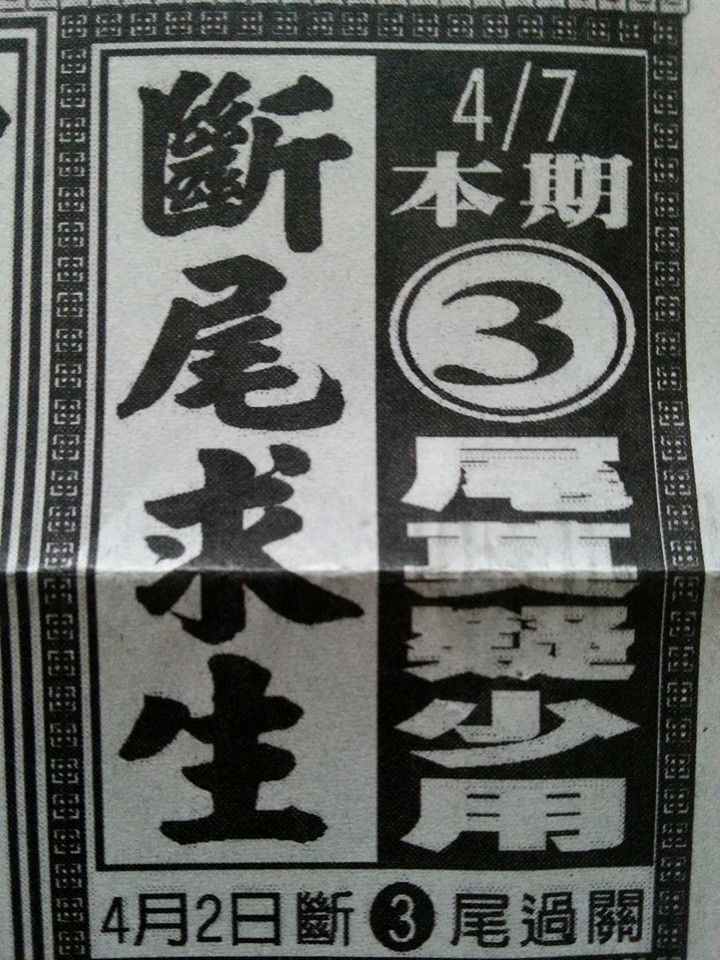 4/7
本期
③
尾
少用
斷尾求生
4月2日斷❸尾過關